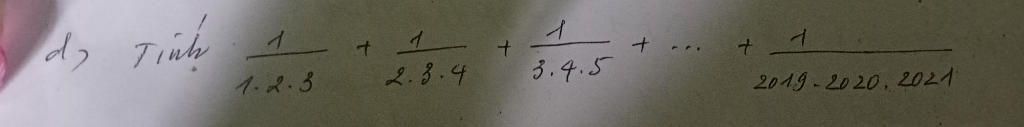 d) Tính 1/1.2.3 + 1/2.3.4 + 1/3.4.5 + ... + 1/2019.2020.2021